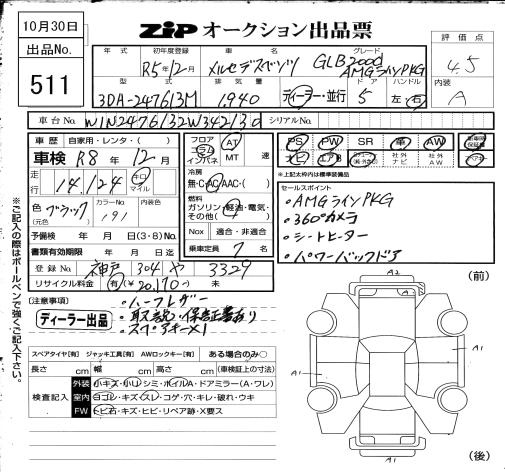 10月30日
ZIP オークション出品票
出品No.
511
評価点
4.5
内装
A
年式 初年度登録 車名 グレード
R5年12月 メルセデスベンツ GLB200d AMGラインPKG
型式 排気量 ドア ハンドル
3DA-247613M 1,940 ディーラー・並行 5 左・右
車台No. W1N2476132W342130 シリアルNo.
車歴 自家用・レンタ・( )
車検 R8年12月
走行 14,124 キロ マイル
色(元色) ブラック カラーNo. 191 内装色
予備検 年 月 日(3・8)No.
書類有効期限 年 月 日迄
登録No. 神戸 304 や 3329
リサイクル料金 有(¥20,170) 未
フロア インパネ AT MT 速
冷房 無・C・AC・AAC・( )
燃料 ガソリン・軽油・電気・その他( )
Nox 適合・非適合
乗車定員 7 名
PS PW SR 革 AW
ナビ エアB 社外ナビ 社外AW
※上記太枠内は標準装備品
セールスポイント
・AMGラインPKG
・360°カメラ
・シートヒーター
・パワーバックドア
[注意事項]
ディーラー出品
・ハーフレザー
・取説・保証書あり
・スペアキー×1
スペアタイヤ[有] ジャッキ工具[有] AWロックキー[有] ある場合のみ○
長さ cm 幅 cm 高さ cm (車検証上の寸法)
検査記入
外装 小キズ・小凹・シミ・ホイルA・ドアミラー(A・ワレ)
室内 ヨゴレ・キズ・スレ・コゲ・穴・キレ・破れ・ウキ
FW トビ石・キズ・ヒビ・リペア跡・X要ス
※ご記入の際はボールペンで強くご記入下さい。
(前)
A2
A1
A1
A1
(後)